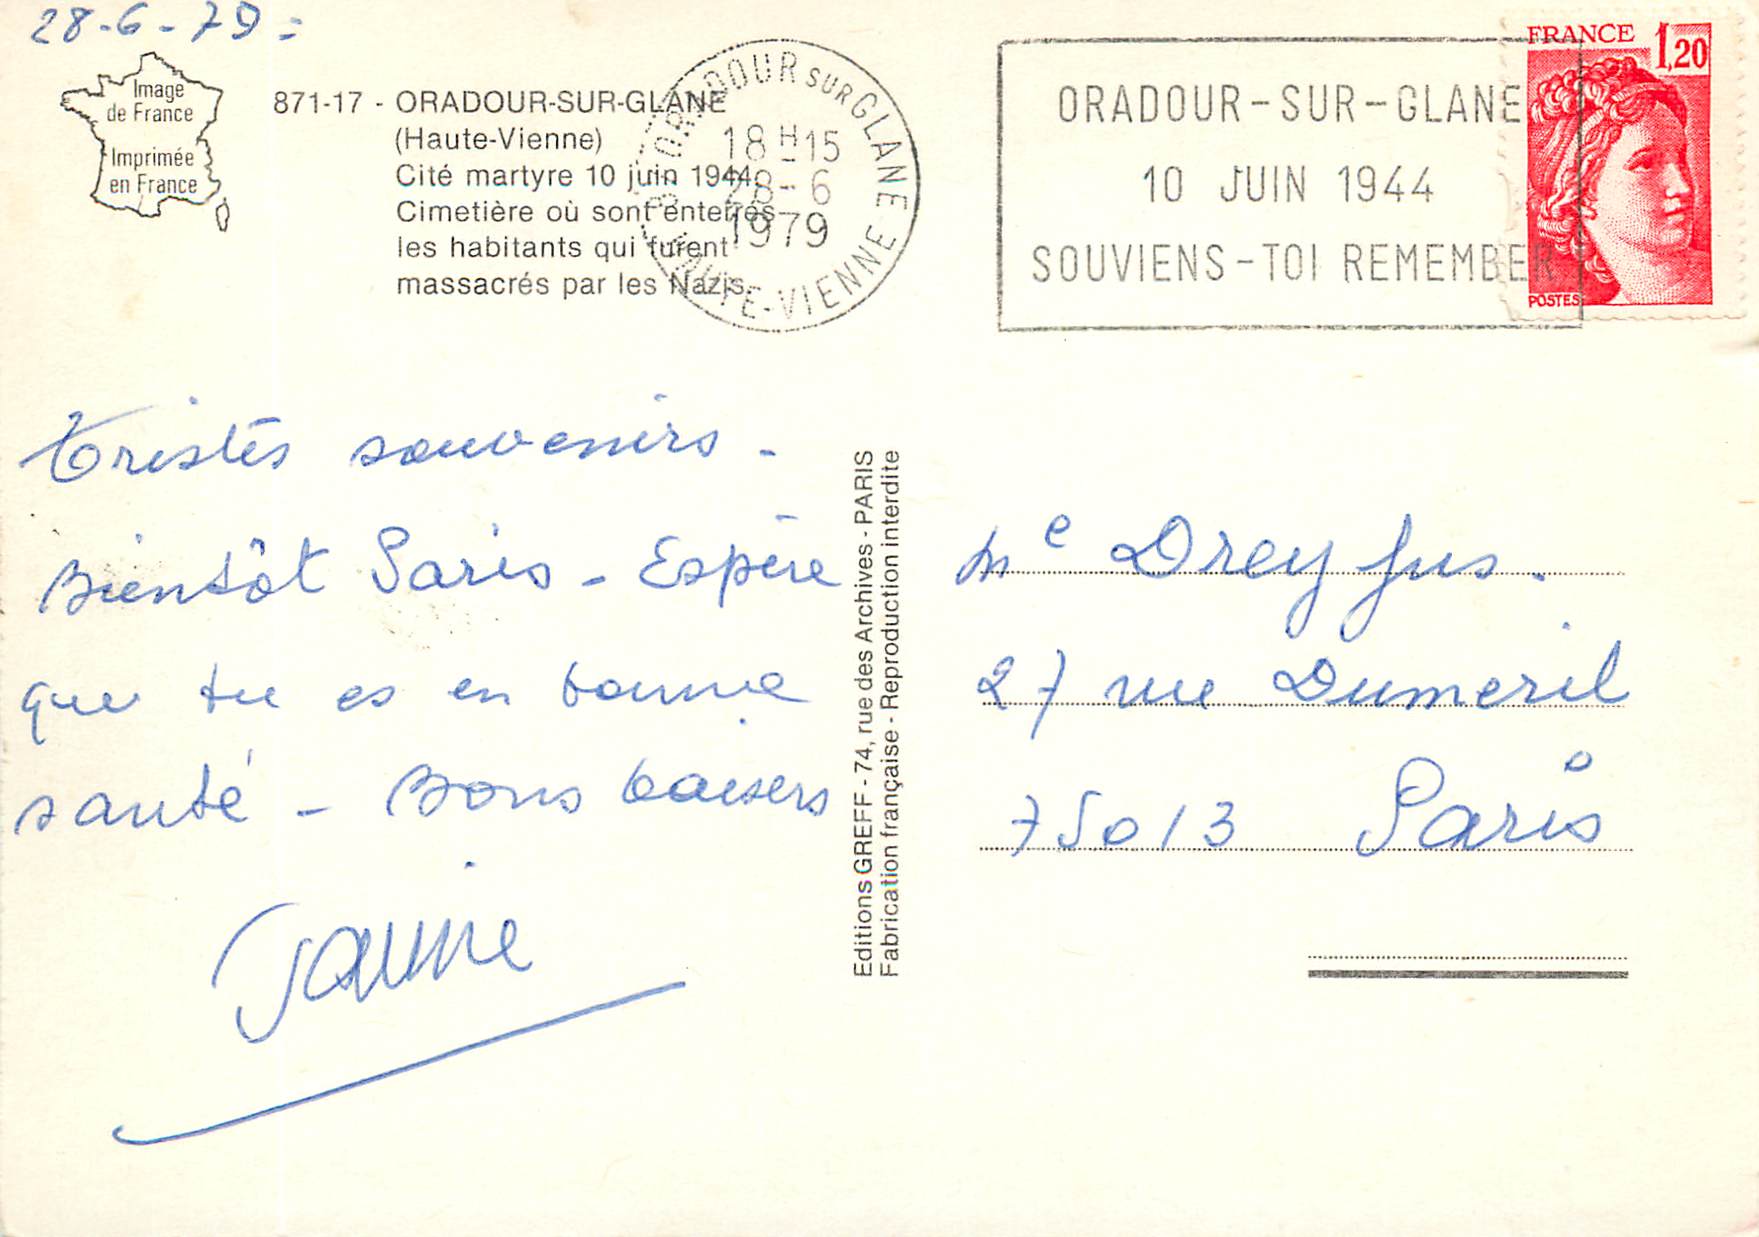 28-6-79=
Image
de France
Imprimée
en France
871-17 - ORADOUR-SUR-GLANE
(Haute-Vienne)
Cité martyre 10 juin 1944.
Cimetière où sont enterrés
les habitants qui furent
massacrés par les Nazis.
ORADOUR SUR GLANE
18 H 15
28-6
1979
HAUTE-VIENNE
ORADOUR-SUR-GLANE
10 JUIN 1944
SOUVIENS-TOI REMEMBER
FRANCE 1,20
POSTES
Tristes souvenirs -
Bientôt Paris - Espère
que tu es en bonne
santé - Bons baisers
Editions GREFF - 74, rue des Archives - PARIS
Fabrication française - Reproduction interdite
Me Dreyfus.
27 rue Dumeril
75013 Paris